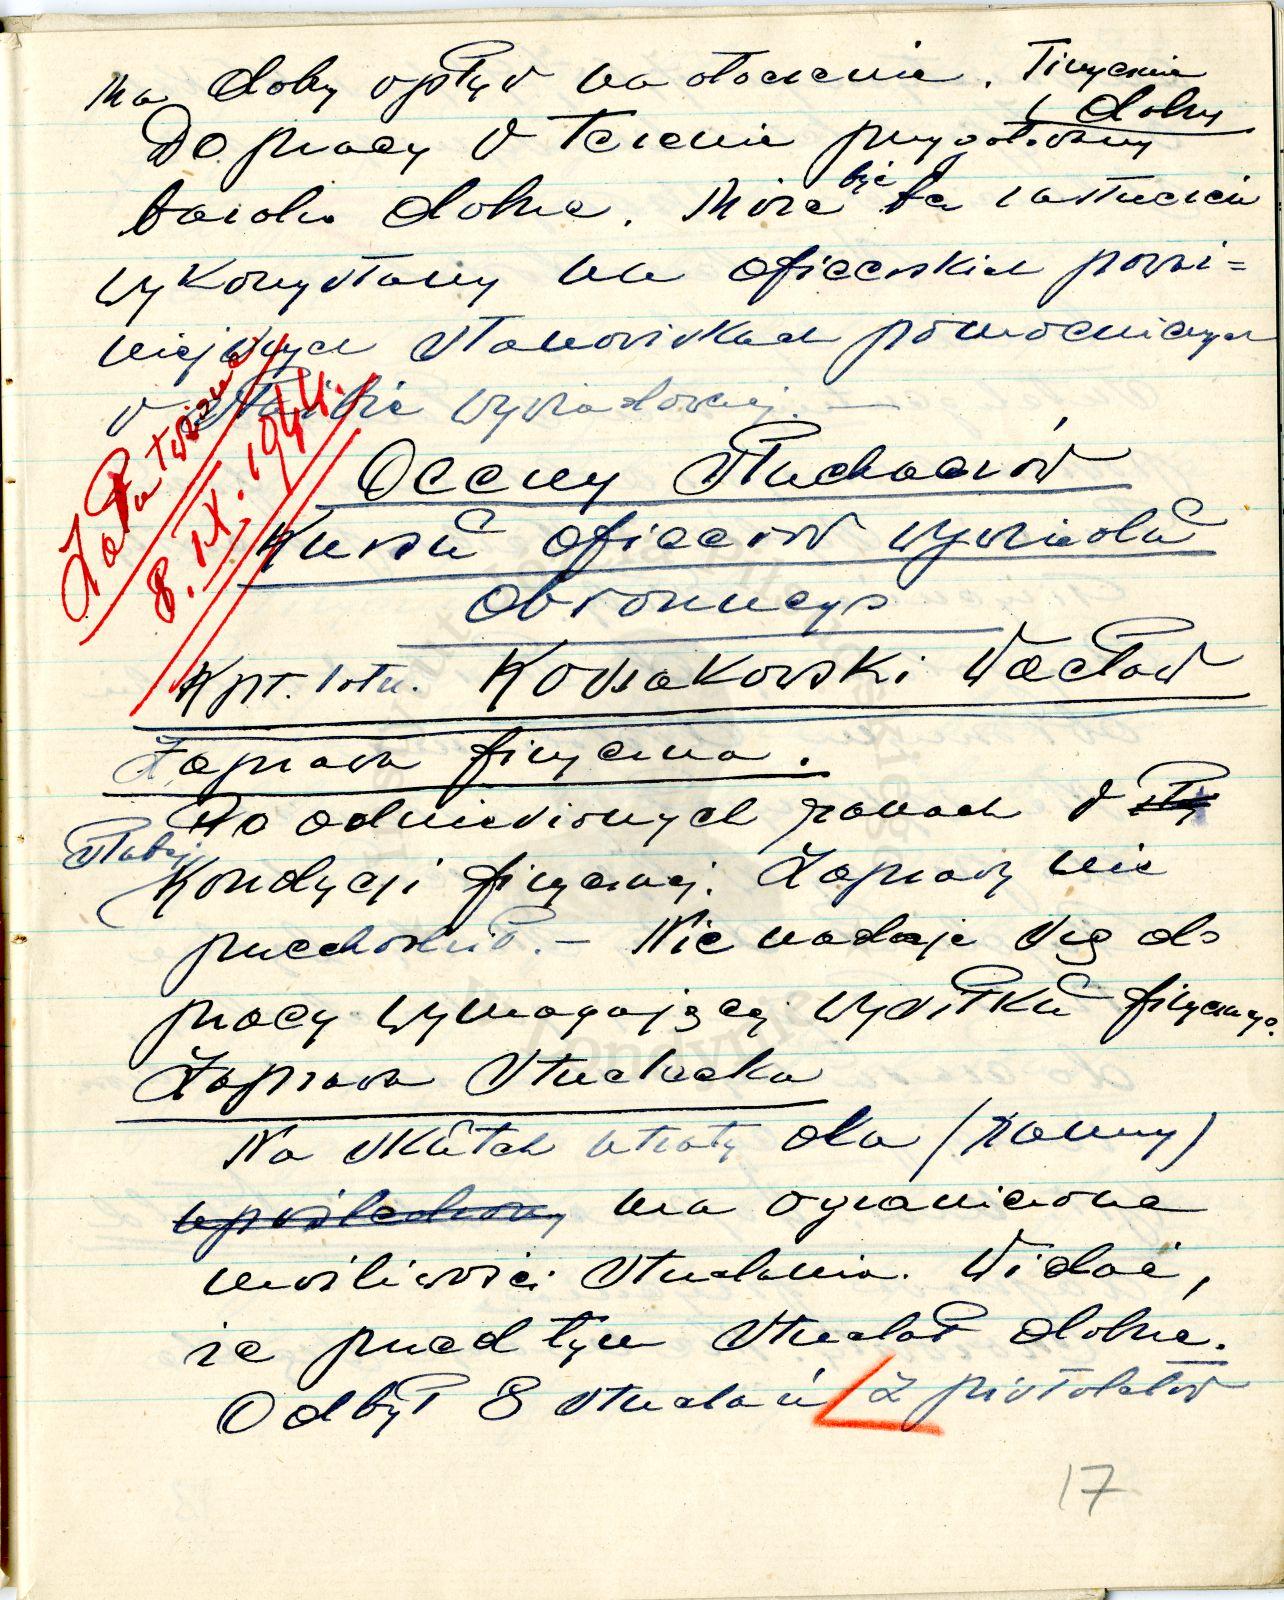 Ma dobry wpływ na otoczenie. Fizycznie
dobry
Do pracy w terenie przygotowany
bardzo dobrze. Może być
wykorzystany na oficerskich poważ=
niejszych stanowiskach pomocniczych
w służbie wywiadowczej. —
Załatwione
8. IX. 1944.
Oceny słuchaczów
Kursu oficerów wywiadu
obronnego
Kpt. lotn. Kossakowski Wacław
Zaprawa fizyczna.
Po odniesionych ranach w
słabej
kondycji fizycznej. Zaprawy nie
przechodził. — Nie nadaje się do
pracy wymagającej wysiłku fizycznego.
Zaprawa strzelecka
Na skutek utraty oka (ranny)
upośledzony ma ograniczone
możliwości strzelania. Widać,
że przed tym strzelał dobrze.
Odbył 8 strzelań z pistoletów
17